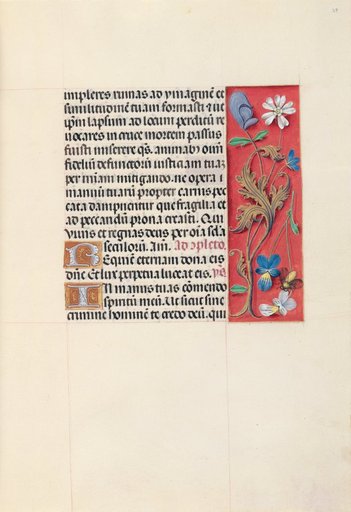 impleres ruinas ad ymaginē et
similitudinē tuam formasti ⁊ ut
ip̄m lapsum ad locum perditū re
uocares in cruce mortem passus
fuisti miserere q̄s. animab⁹ om̄
fidelium defunctorū iustitiam tuaʒ
per miam mitigando. ne opera
manuū tuarū propter carnis pec
cata dampnentur que fragilia et
ad peccandū prona creasti. Qui
viuis et regnas deus per oīa s̄cla
seculorum. Am̄. Ad cōpleto.
Requiē eternam dona eis
dn̄e et lux perpetua luceat eis.
In manus tuas cōmendo
spiritū meū. Ut sicut sine
crimine hominē te credo deū. qui